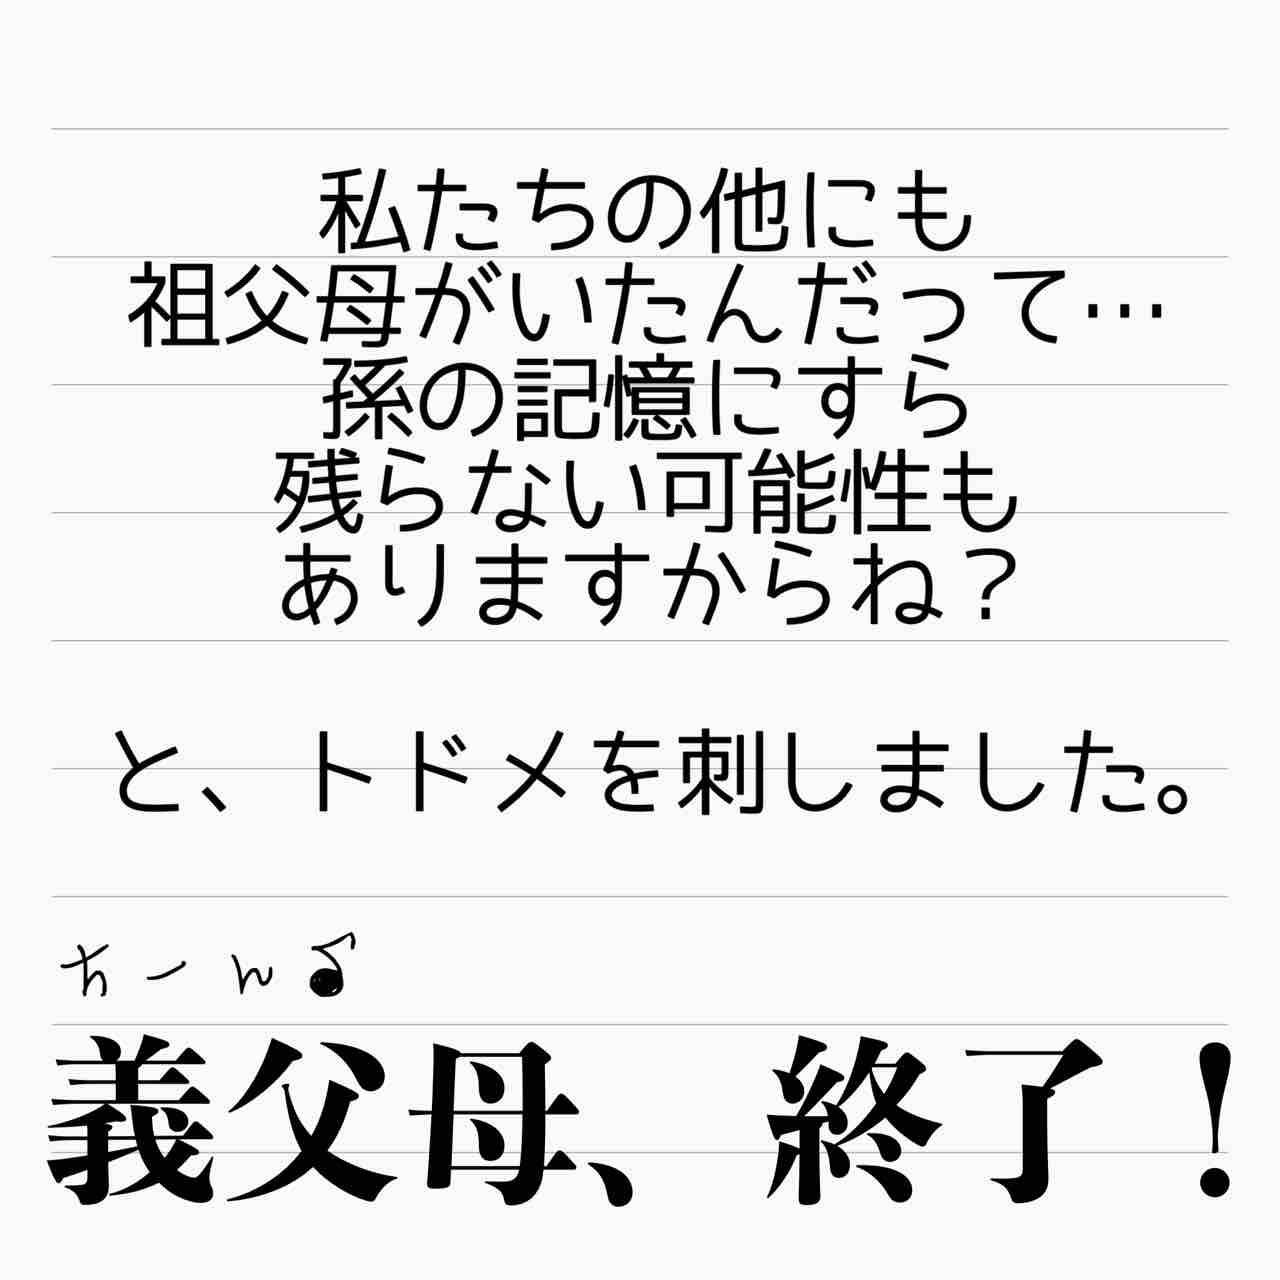 私たちの他にも
祖父母がいたんだって…
孫の記憶にすら
残らない可能性も
ありますからね？
と、トドメを刺しました。
ちーん♪
義父母、終了！